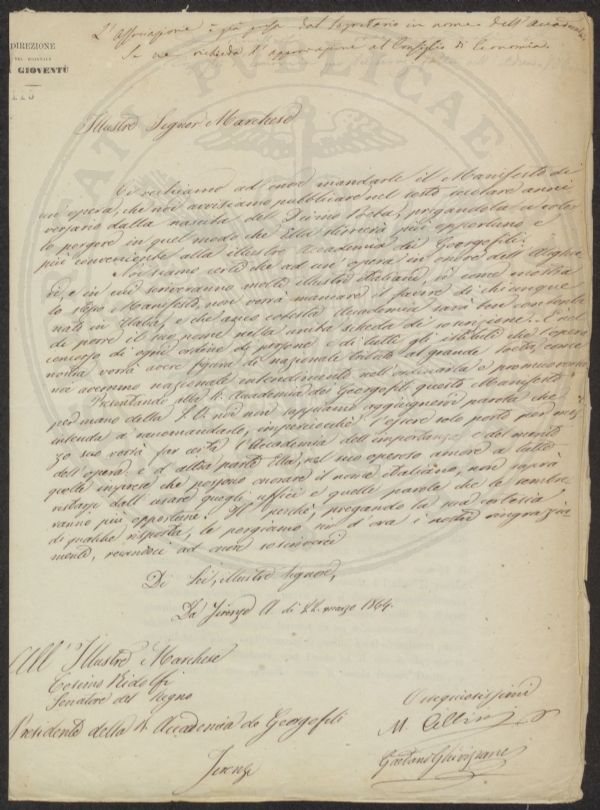 L'Associazione è già presa dal Segretario in nome dell'Accademia
Se ne richieda l'approvazione al Consiglio di Economia
DIREZIONE
DEL GIORNALE
GIOVENTÙ
Illustre Signor Marchese
Ci rechiamo ad onore mandarle il Manifesto di
un'opera, che noi avvisiamo pubblicare nel sesto secolare anni
versario dalla nascita del Divino Poeta, pregandola a voler
lo porgere in quel modo che Ella stimerà più opportuno e
più conveniente alla illustre Accademia dei Georgofili.
Noi siamo certi che ad un'opera in onore dell'Alighie
ri, e in cui scriveranno molti illustri italiani, sì come mostra
lo stesso Manifesto, non verrà mancare il favore di chiunque
nati in Italia, e che anco cotesta Accademia sarà ben contenta
di porre il suo nome nella unita scheda di soscrizione. E nel
concorso di ogni ordine di persone e di tutti gli istituti che l'opera
nostra vorrà avere figura di nazionale tributo al grande Poeta, come
noi avemmo nazionale intendimento nell'ordinarla e promuoverla.
Presentando alla R. Accademia dei Georgofili questo Manifesto
per mano della S. V. noi non sappiamo aggiugnervi parola che
intenda a raccomandarlo, imperciocchè l'essere solo porto per mez
zo suo varrà far certa l'Accademia dell'importanza e del merito
dell'opera: e d'altra parte Ella, nel suo operoso amore a tutte
quelle imprese che possono onorare il nome italiano, non saprà
ristarsi dall'usare quegli uffici e quelle parole che le sembre
ranno più opportune. Il perchè, pregando la sua cortesia
di qualche risposta, le porgiamo fin d'ora i nostri ringrazia
menti, recandoci ad onore soscriverci
Di Lei, illustre Signore,
Da Firenze A dì 22 marzo 1864.
All'Illustre Marchese
Cosimo Ridolfi
Senatore del Regno
Presidente della R. Accademia de' Georgofili
Firenze
Ossequiosissimi
M. Cellini
Gaetano Ghivizzani